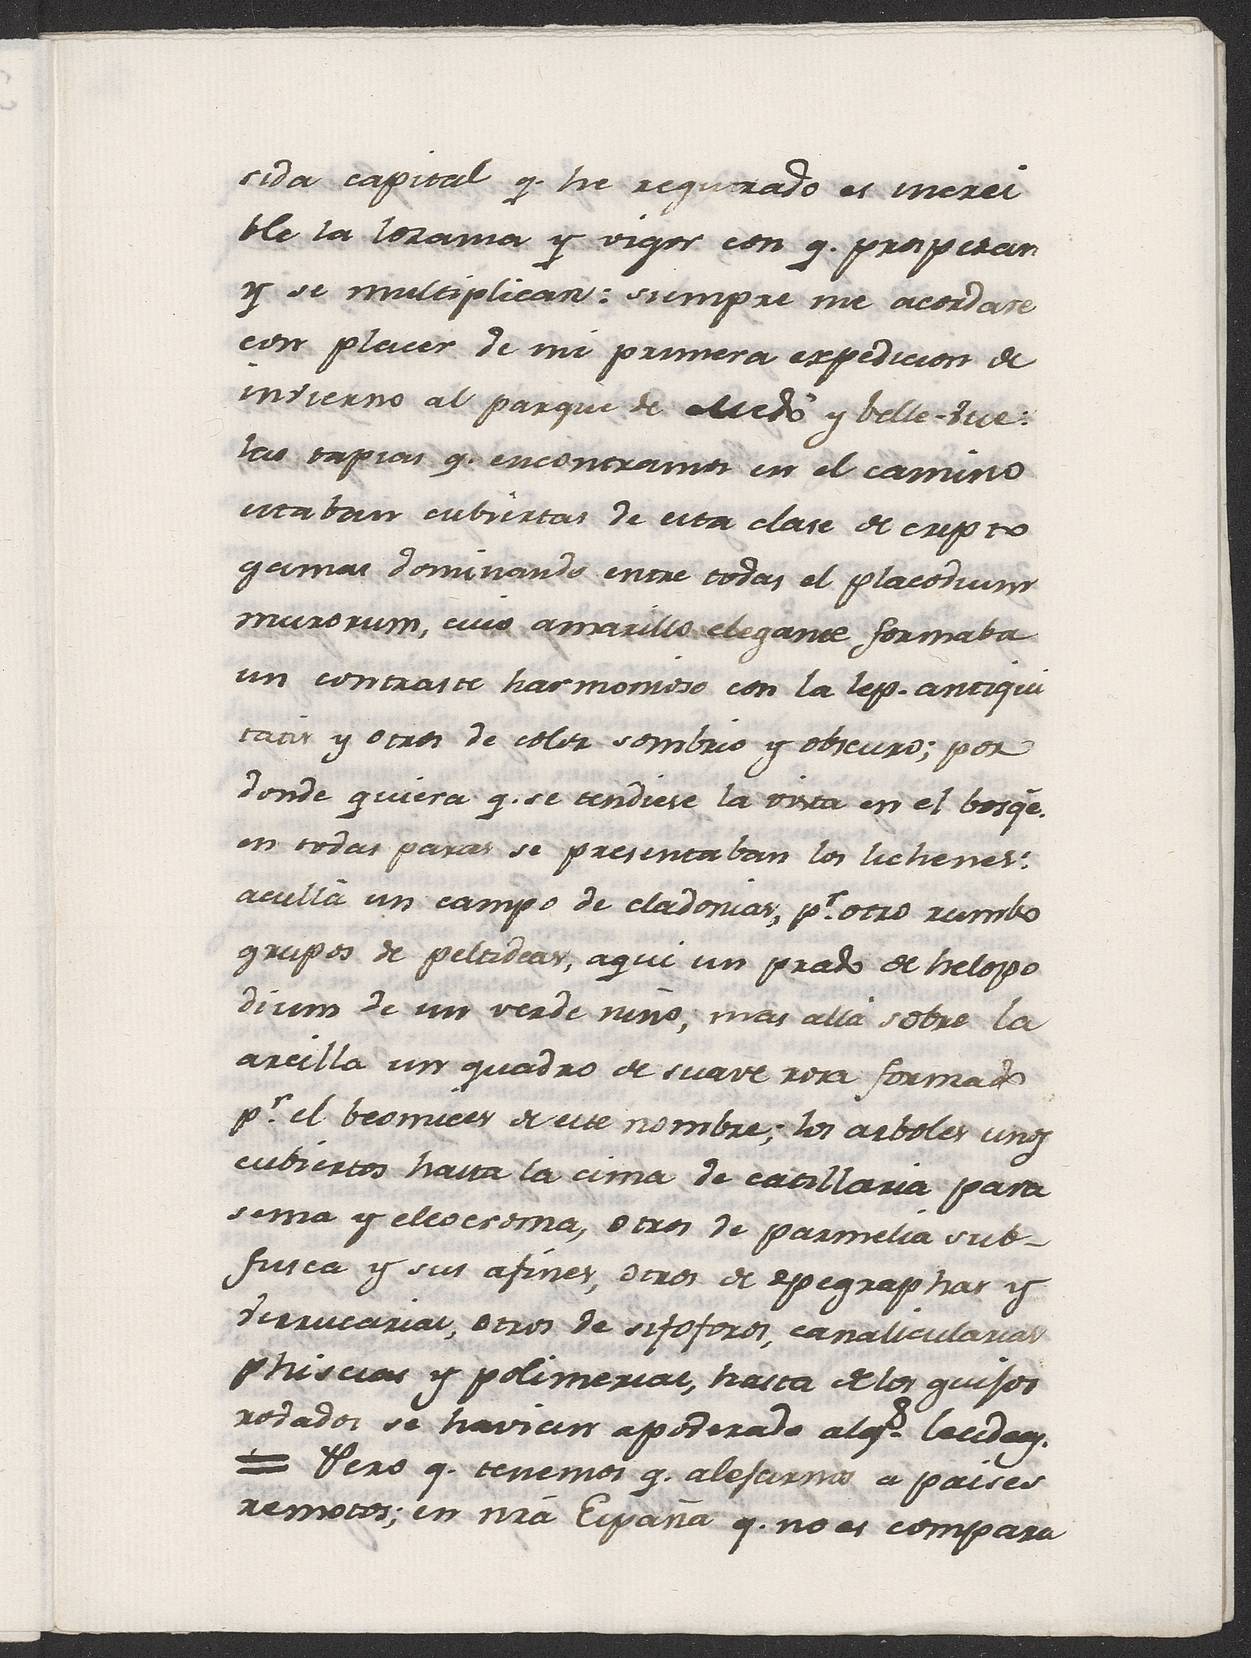 sida capital q. he registrado es increi
ble la lozania y vigor con q. prosperan
y se multiplican: siempre me acordare
con placer de mi primera expedicion de
invierno al parque de Medõ y belle-vue:
las tapias q. encontramos en el camino
estaban cubiertas de esta clase de cripto
gamas dominando entre todas el placodium
murorum, cuio amarillo elegante formaba
un contraste harmonioso con la lep. antiqui
tatis y otros de color sombrio y obscuro; por
donde quiera q. se tendiese la vista en el bosq̃e.
en todas partes se presentaban los lichenes:
acullà un campo de cladonias, p.r otro rumbo
grupos de peltideas, aqui un prado de helopo
dium de un verde niño; mas allà sobre la
arcilla un quadro de suave rosa formado
p.r el beomices de este nombre; los arboles unos
cubiertos hasta la cima de catillaria para
sema y eleocroma, otros de parmelia sub-
fusca y sus afines, otros de opegraphas y
verrucarias, otros de sifoforos, canalicularias
phiscias y polimerias, hasta de los guijos
rodados se havien apoderado alg.s lecideas.
= Pero q. tenemos q. alejarnos a paises
remotos; en nrã España q. no es compara